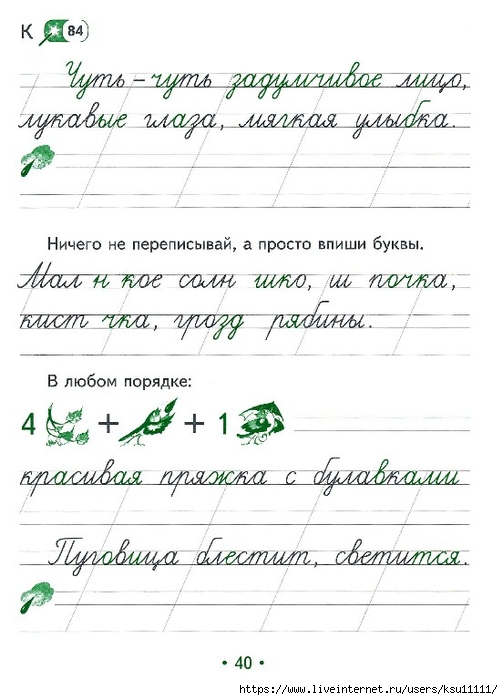 К 84
Чуть – чуть задумчивое лицо,
лукавые глаза, мягкая улыбка.
Ничего не переписывай, а просто впиши буквы.
Мал н кое солн шко, ш почка,
кист чка, грозд рябины.
В любом порядке:
4 + + 1
красивая пряжка с булавками
Пуговица блестит, светится.
• 40 •
https://www.liveinternet.ru/users/ksu11111/